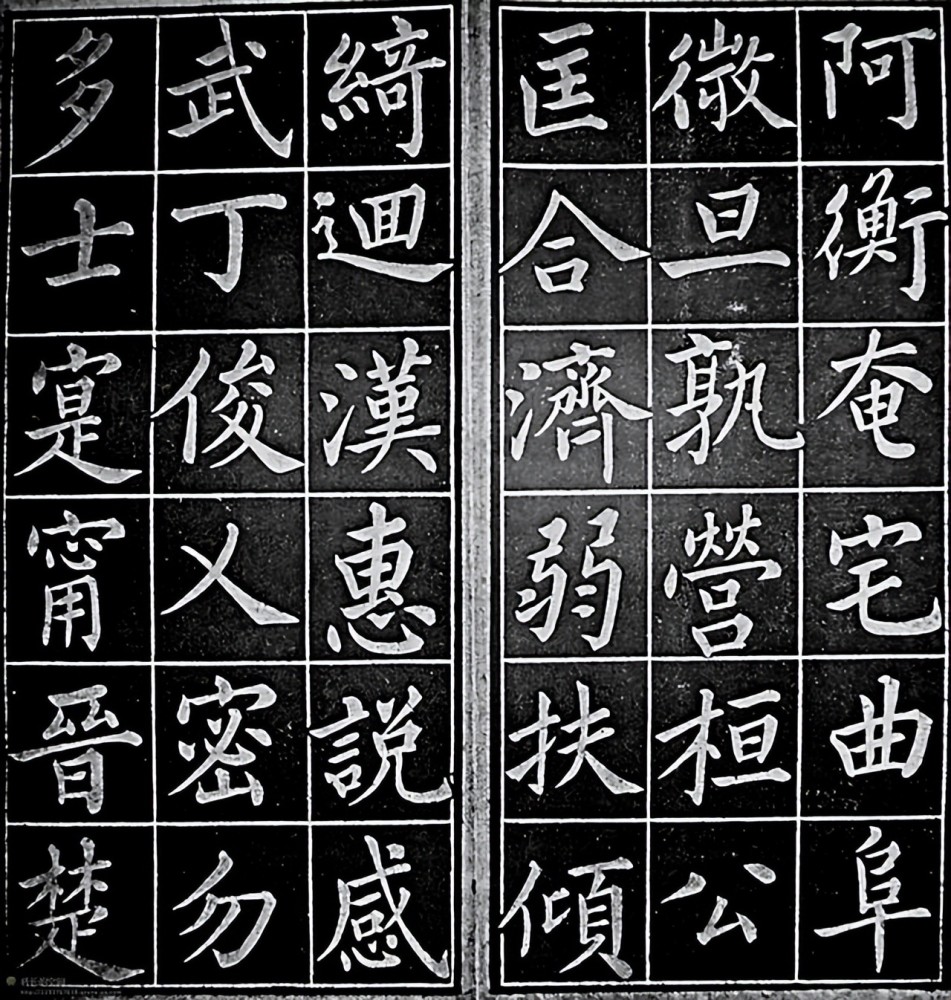 阿衡奄宅曲阜
微旦孰營桓公
匡合濟弱扶傾
綺迴漢惠説感
武丁俊乂密勿
多士寔甯晉楚